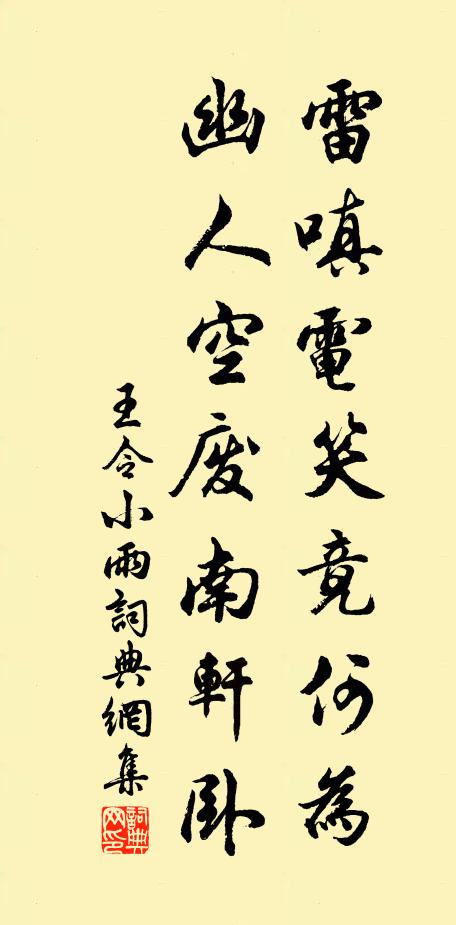 雷嗔電笑竟何為
幽人空廢南軒臥
王令小雨詞典網集
詞典网印